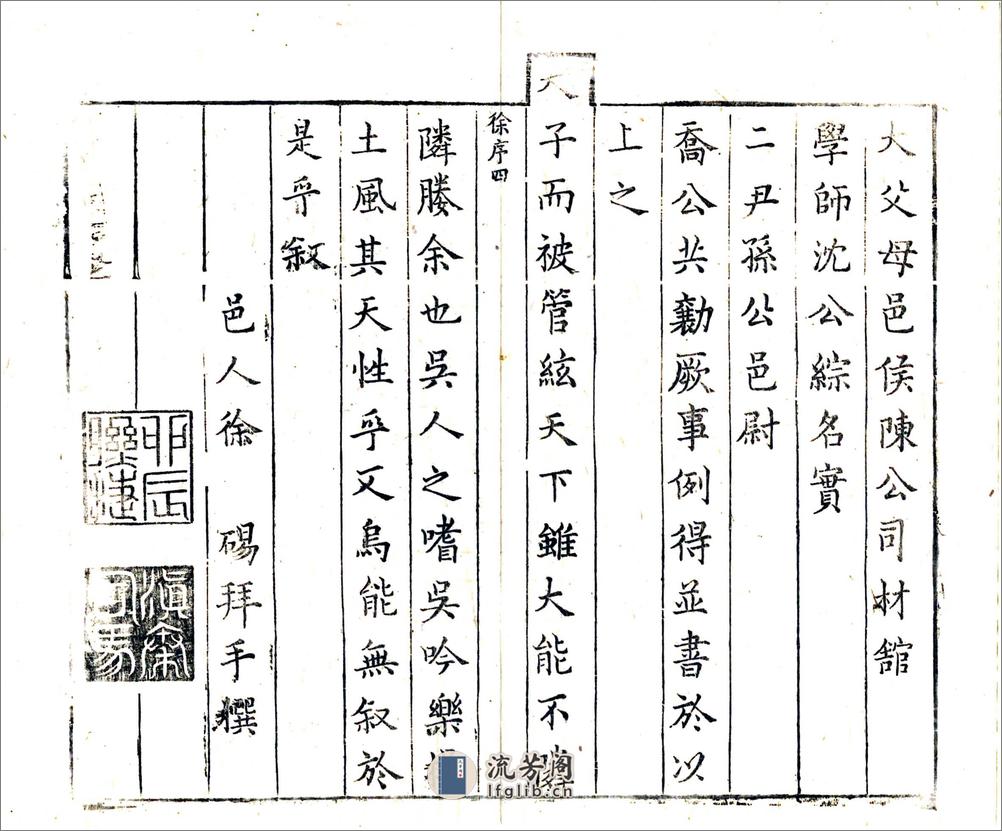 大父母邑侯陳公司材舘
學師沈公綜名實
二尹孫公邑尉
喬公共勷厥事例得並書於以
上之
天子而被管絃天下雖大能不
徐序四
隣媵余也吳人之嗜吳吟樂
土風其天性乎又烏能無叙於
是乎叙
邑人徐 碭拜手撰
流芳阁
lfglib.cn